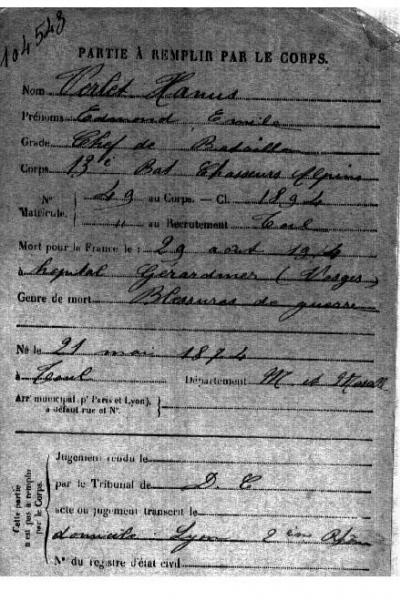 104543
PARTIE À REMPLIR PAR LE CORPS.
Nom Verlet Hanus
Prénoms Edmond Emile
Grade Chef de Bataillon
Corps 13e Bat Chasseurs Alpins
N° Matricule. 49 au Corps. — Cl. 1894
" au Recrutement Toul
Mort pour la France le : 29 aout 1914
à hôpital Gérardmer (Vosges)
Genre de mort Blessures de guerre
Né le 21 mai 1874
à Toul Département M et Moselle
Arrt municipal (pr Paris et Lyon),
à défaut rue et N°.
Cette partie
n'est pas à remplir
par le Corps.
Jugement rendu le
par le Tribunal de D. C
acte ou jugement transcrit le
domicile Lyon 2 em Rhône
N° du registre d'état civil